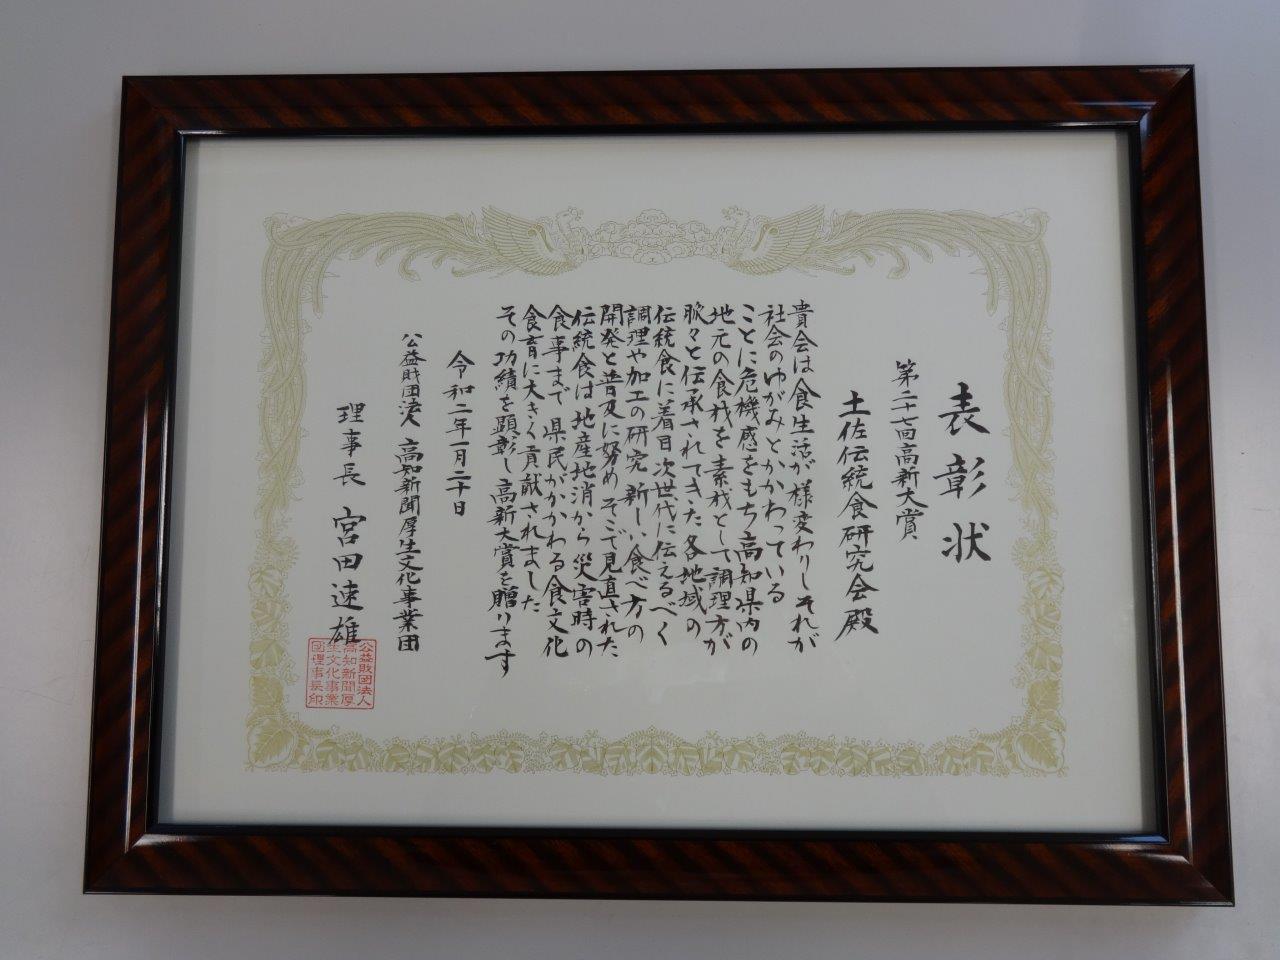 表彰状
第二十七回高新大賞
土佐伝統食研究会殿
貴会は食生活が様変わりしそれが
社会のゆがみとかかわっている
ことに危機感をもち高知県内の
地元の食材を素材として調理方が
脈々と伝承されてきた各地域の
伝統食に着目次世代に伝えるべく
調理や加工の研究新しい食べ方の
開発と普及に努めそこで見直された
伝統食は地産地消から災害時の
食事まで県民がかかわる食文化
食育に大きく貢献されました
その功績を顕彰し高新大賞を贈ります
令和二年一月二十日
公益財団法人 高知新聞厚生文化事業団
理事長 宮田速雄
公益財団法人
高知新聞厚
生文化事業
団理事長印